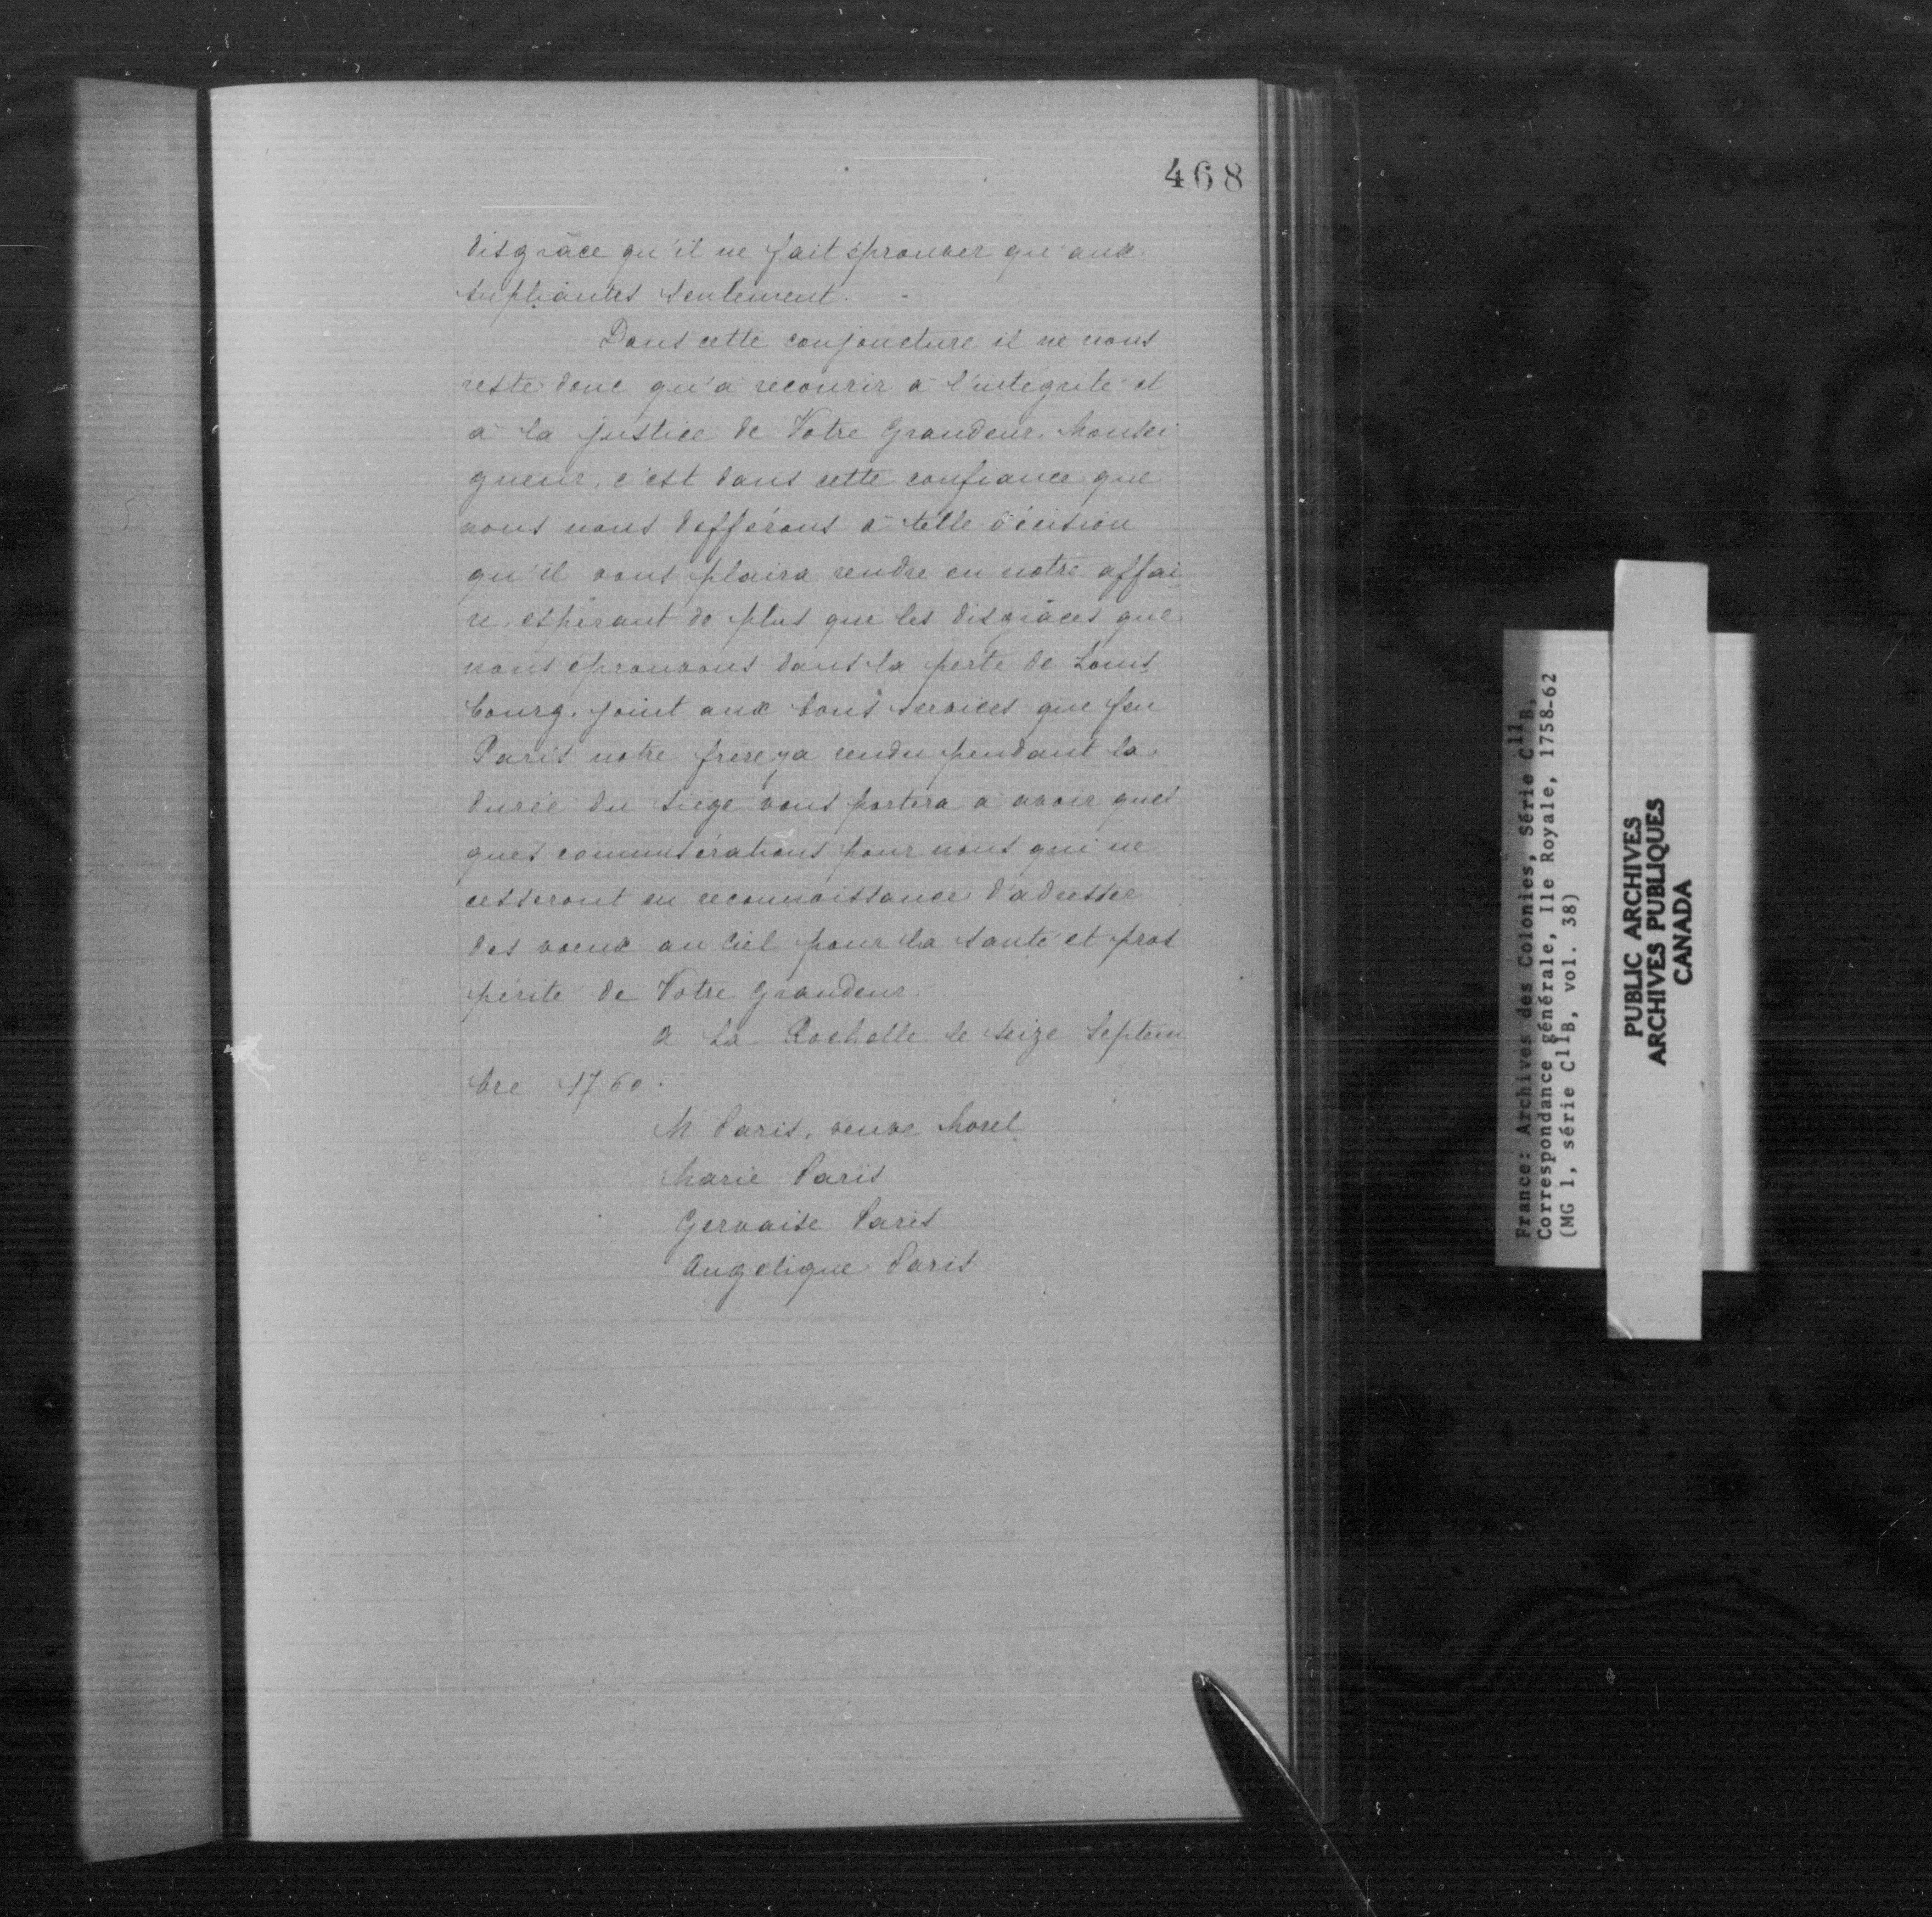 468
disgrâce qu'il ne fait éprouver qu'aux
supliantes seulement.
Dans cette conjoncture il ne nous
reste donc qu'à recourir à l'intégrité et
à la justice de Votre Grandeur, Monsei-
gneur, c'est dans cette confiance que
nous nous defférons à telle décision
qu'il vous plaira rendre en notre affai-
re, espérant de plus que les disgrâces que
nous éprouvons dans la perte de Louis-
bourg, joint aux bons services que feu
Paris notre frère y a rendu pendant la
durée du siège vous portera à avoir quel
ques commisérations pour nous qui ne
cesseront en reconnaissance d'adresser
des voeux au Ciel pour la santé et pros
périté de Votre Grandeur.
à La Rochelle le seize Septem-
bre 1760.
M Paris, veuve Morel
Marie Paris
Gervaise Paris
Angelique Paris
France: Archives des Colonies, Série C11B,
Correspondance générale, Ile Royale, 1758-62
(MG 1, série C11B, vol. 38)
PUBLIC ARCHIVES
ARCHIVES PUBLIQUES
CANADA